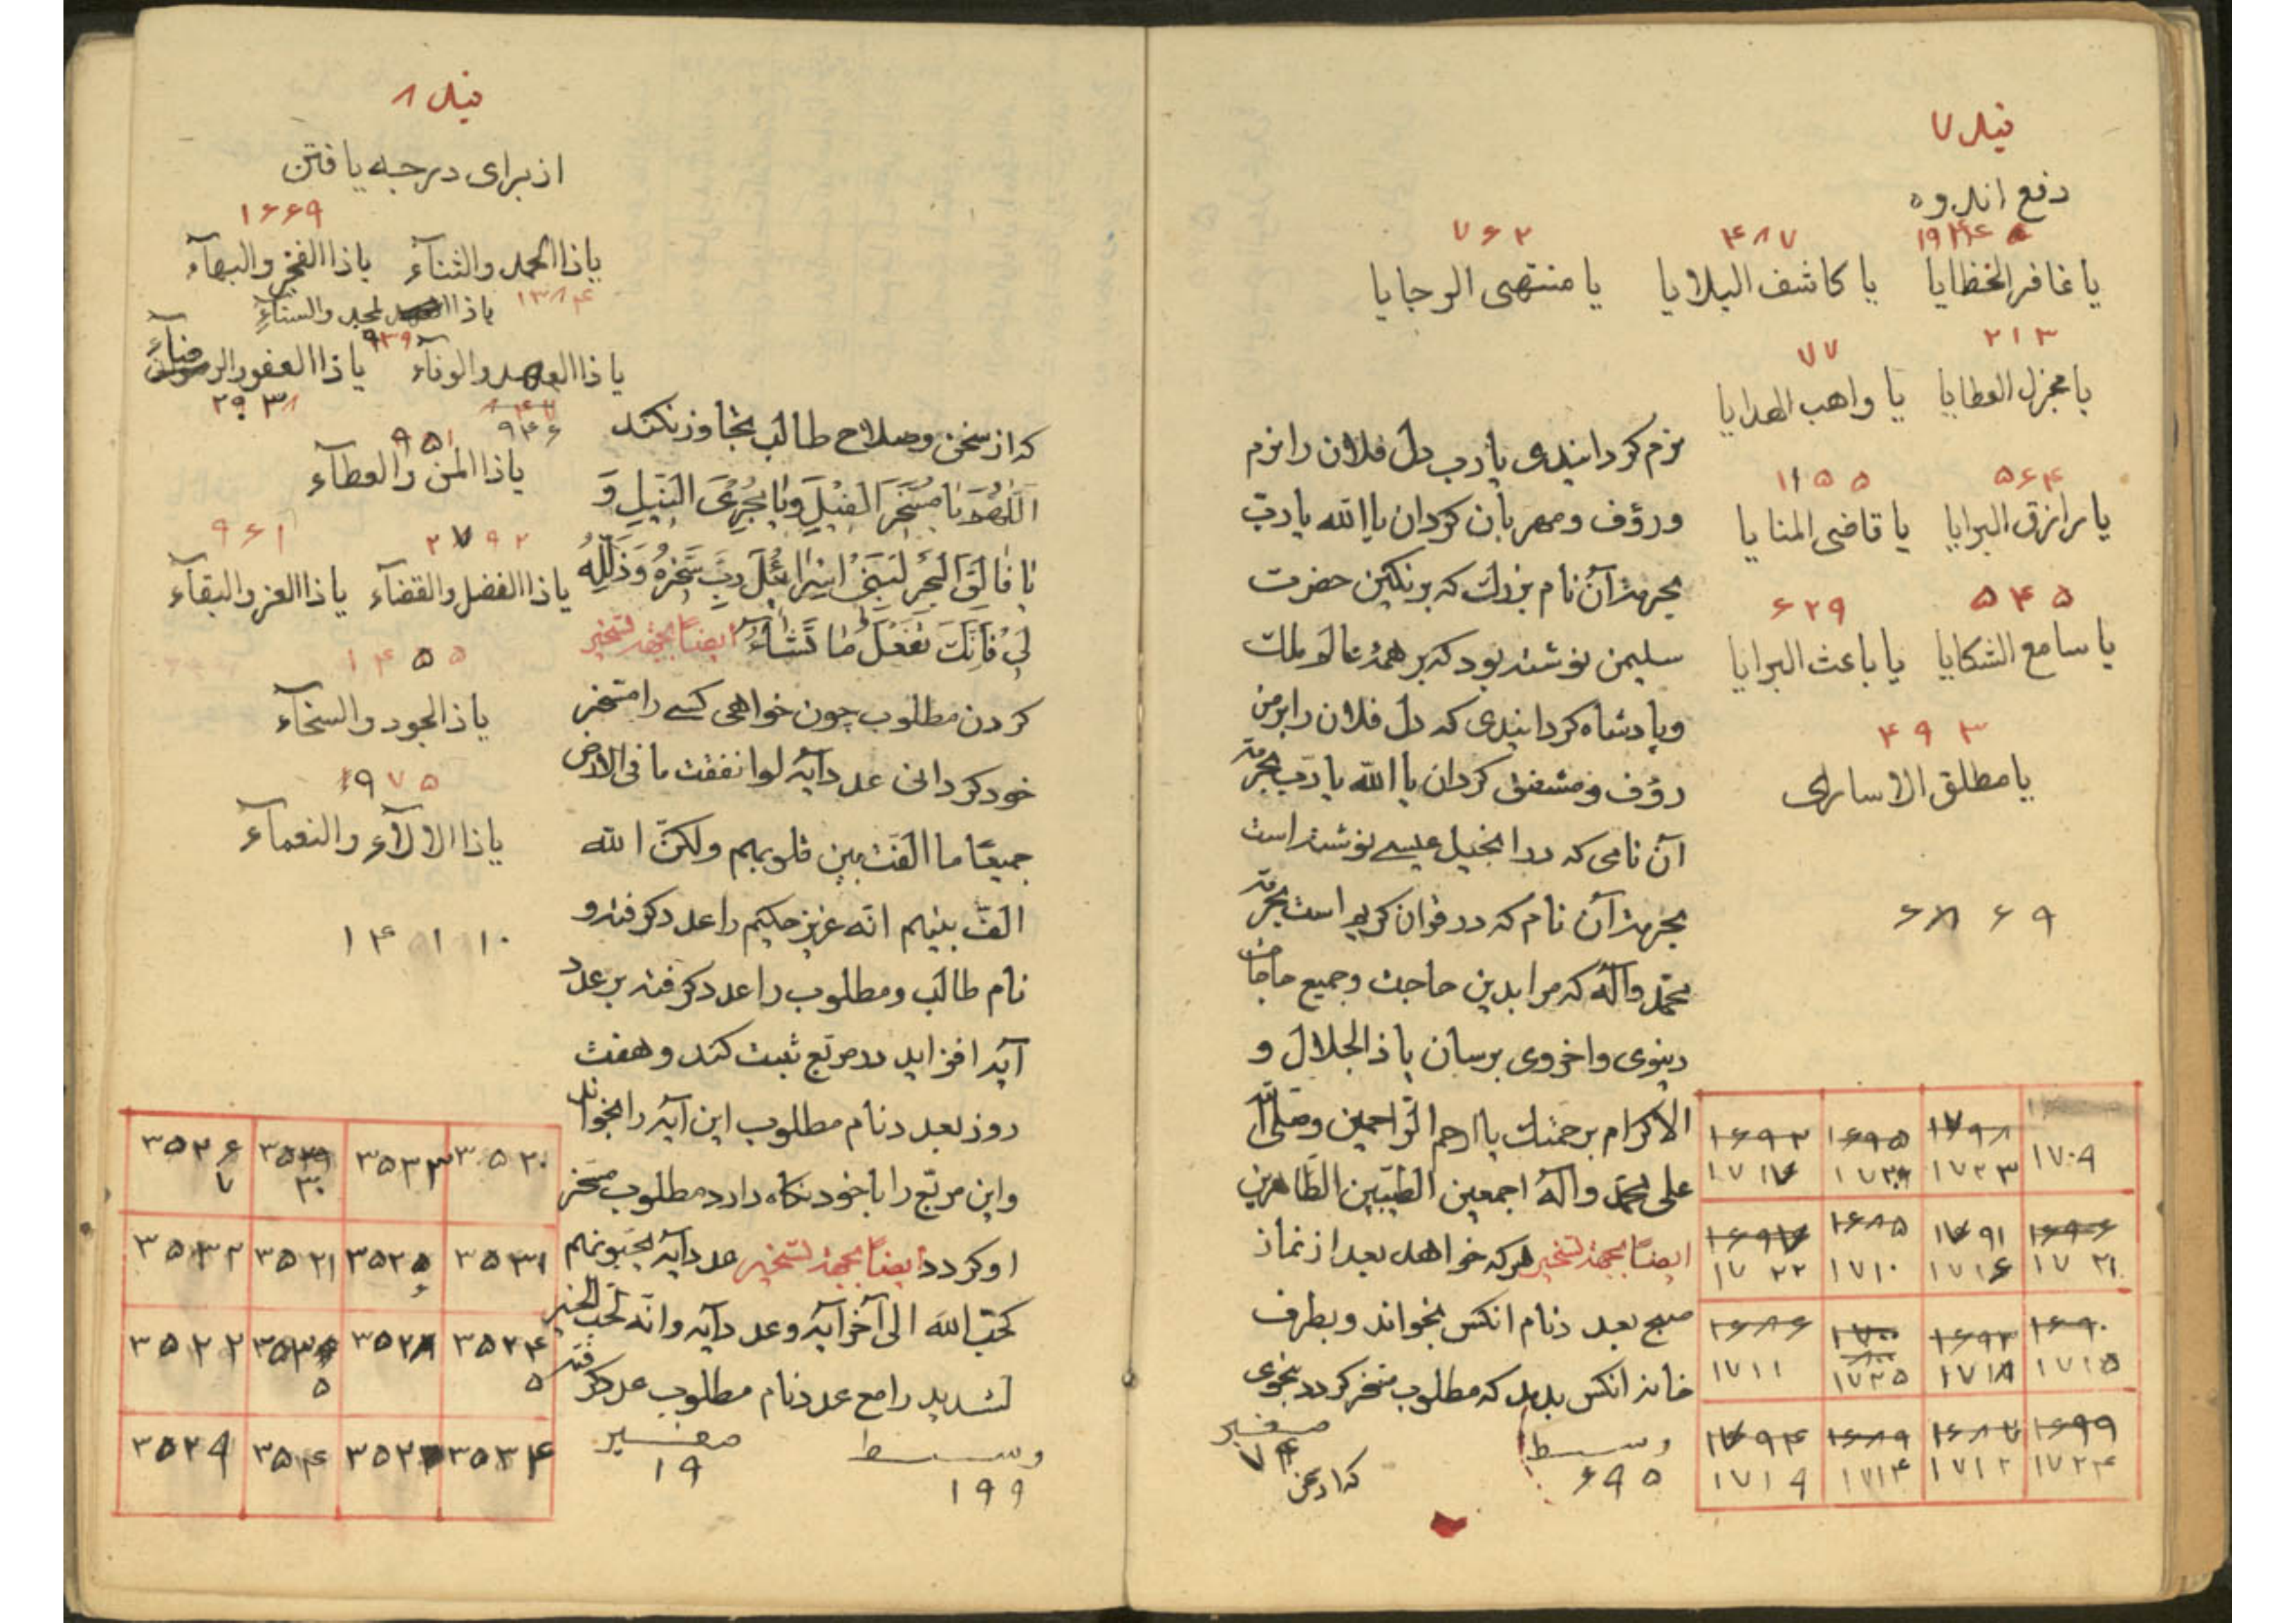 دفع اندوه
۴۸۷
۷۶۲
یا غافر الخطایا یا کاشف البلایا یا منتهی الرجایا
۲۱۳
۷۷
یا مجزل العطایا یا واهب الهدایا
۵۶۴
۱۱۵۵
یا رازق البرایا یا قاضی المنایا
۵۴۵
۶۲۹
یا سامع الشکایا یا باعث البرایا
۴۹۳
یا مطلق الاساری
۶۸۶۹
نرم کردانیدی یا رب دل فلان را نرم
ورؤف ومهربان کردان یا الله یا ربّ
بحرمت آن نام بزرك که برنکین حضرت
سلیمن نوشته بود که بر همهٔ عالم ملك
وپادشاه کردانیدی که دل فلان را بر من
رؤف ومشفق کردان یا الله یا ربّ بحرمة
آن نامی که در انجیل عیسی نوشته است
بحرمت آن نام که در قران کریم است بحرمة
محمّد وآله که مرا بدین حاجت وجمیع حاجات
دینوی واخروی برسان یا ذالجلال و
الاکرام برحمتك یا ارحم الرّاحمین وصلی الله
علی محمّد وآله اجمعین الطّیّبین الطّاهرین
ایضاً بجهة تسخیر هرکه خواهد بعد از نماز
صبح بعدد نام انکس بخواند وبطرف
خانهٔ انکس بدمد که مطلوب مسخر کردد بنحوی
وسیط
۶۹۵
صغیر
۷۴
که از سخن
۱۷۰۹
۱۷۹۸ ۱۷۲۳
۱۶۹۵
۱۶۹۲ ۱۷۱۷
۱۶۹۶ ۱۷۲۱
۱۷۹۱ ۱۷۱۶
۱۶۸۵ ۱۷۱۰
۱۶۹۷ ۱۷۲۲
۱۶۹۰ ۱۷۱۵
۱۶۹۳ ۱۷۱۸
۱۷۰۰ ۱۷۲۵
۱۶۸۶ ۱۷۱۱
۱۶۹۹ ۱۷۲۴
۱۶۸۷ ۱۷۱۲
۱۶۸۹ ۱۷۱۴
۱۷۹۴ ۱۷۱۹
از برای درجه یافتن
۱۶۶۹
یا ذا الحمد والثنآء یا ذا الفخر والبهآء
۱۳۸۴
یا ذا المجد والسنآء
یا ذا العهد والوفآء یا ذا العفو والرضآء
۹۴۶
۹۵۱
یا ذا المن والعطآء
۲۷۹۲
۹۶۱
یا ذا الفضل والقضآء یا ذا العز والبقآء
۱۴۵۵
یا ذالجود والسخآء
۱۹۷۵
یا ذا الالآء والنعمآء
۱۴۱۱۰
که از سخن وصلاح طالب تجاوز نکند
اَللّٰهُمَّ یٰا مُسَخِّرَ الفِیْلَ وَیٰا مُجْرِیَ النِّیْلِ وَ
یٰا فٰالِقَ الْبَحْرِ لِبَنِیْ اِسْرٰائیْلَ رَبِّ سَخِّرْهُ وَذَلِّلْهُ
لِیْ فَاِنَّكَ تَفْعَلُ مٰا تَشٰآءُ ایضاً بجهة تسخیر
کردن مطلوب چون خواهی کسی را مسخر
خود کردانی عدد آیهٔ لو انفقت ما فی الارض
جمیعًا ما الفت بین قلوبهم ولکنّ الله
الفّ بینهم انّه عزیز حکیم را عدد کرفته و
نام طالب ومطلوب را عدد کرفته بر عدد
آیه افزاید در مربّع ثبت کند وهفت
روز بعدد نام مطلوب این آیه را بخواند
واین مربّع را با خود نکاه دارد مطلوب مسخر
او کردد ایضاً بجهة تسخیر عدد آیهٔ یحبّونهم
کحبّ الله الی آخر آیه وعدد آیه وانّه لحب الخیر
لشدید را مع عدد نام مطلوب عدد کرفته
وسیط
۱۹۹
صغیر
۱۹
۳۵۲۰ ۳۵۳۳ ۳۵۲۶
۳۵۳۱ ۳۵۲۵ ۳۵۲۱ ۳۵۳۲
۳۵۲۴ ۳۵۲۸ ۳۵۲۲
۳۵۳۴ ۳۵۴ ۳۵۲۹